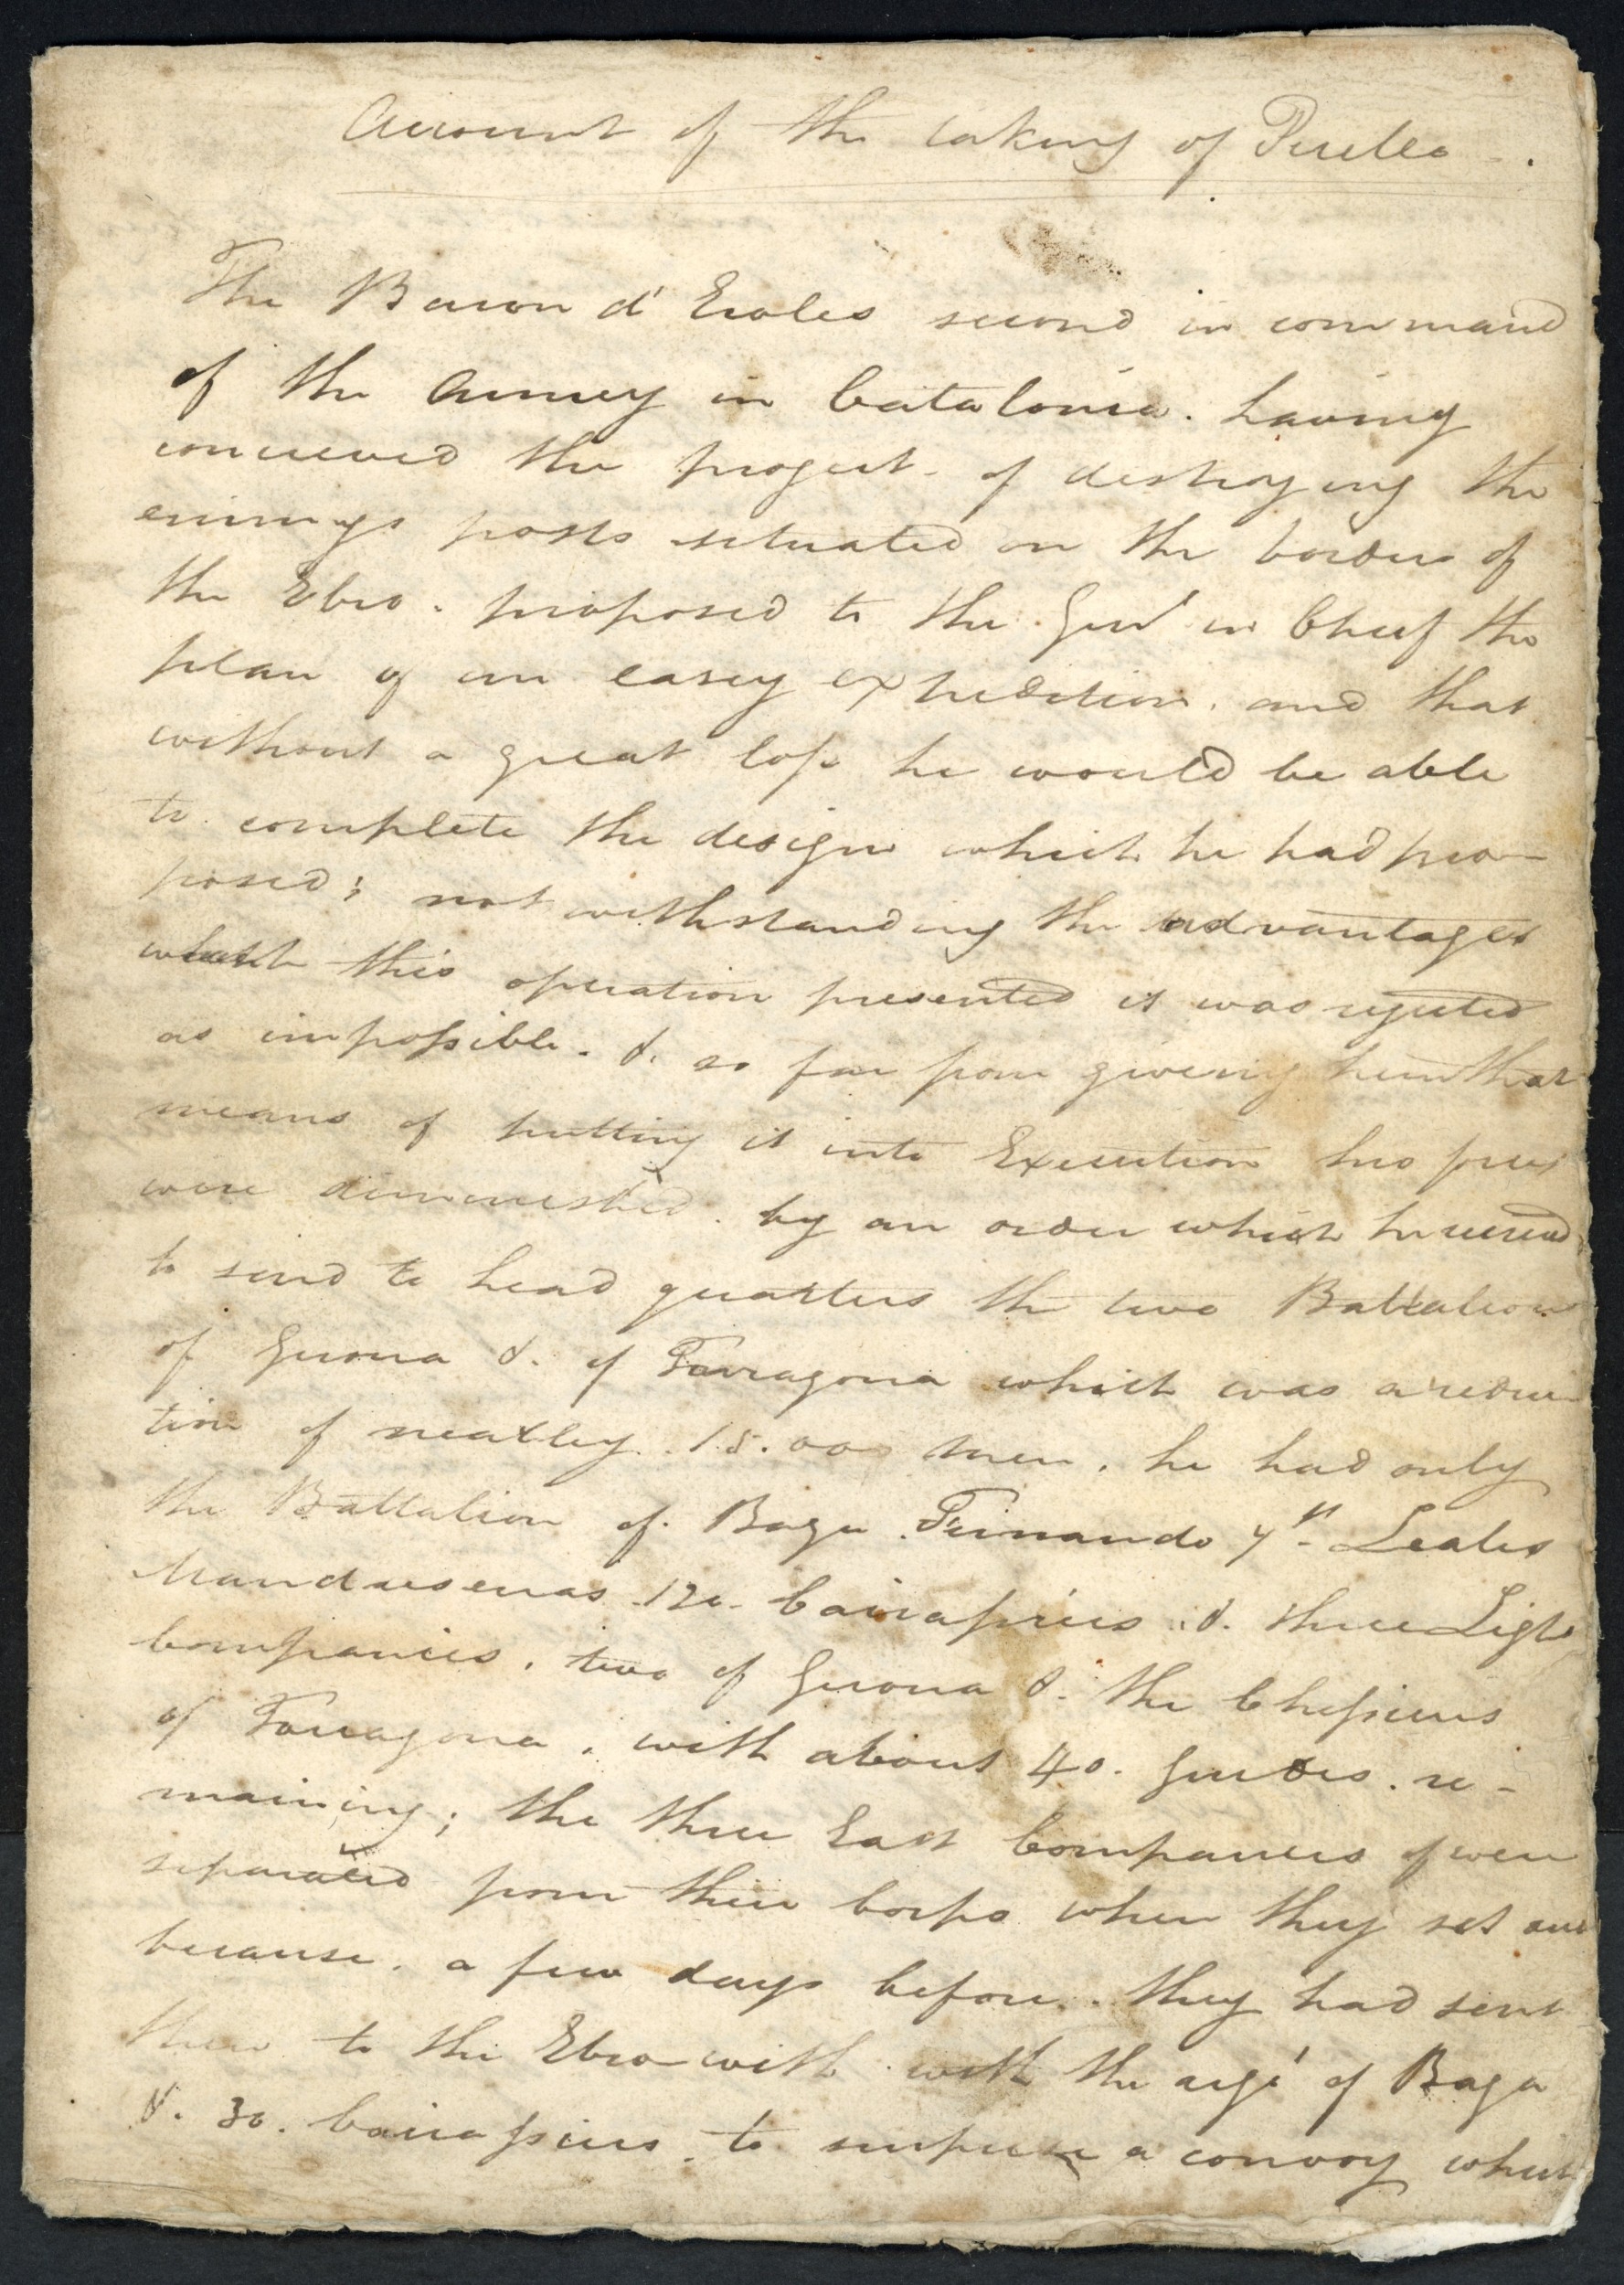 Account of the taking of Perello -.
The Baron d' Eroles second in command
of the Armey in Catalonia. having
conceived the progect - of destroying the
enimys posts situated on the borders of
the Ebro. proposed to the Genl in Cheif the
plan of an easey expedition. and that
without a great loss he would be able
to complete the design which he had pro-
posed; not withstanding the advantages
which this operation presented it was rejected
as impossible. &. so far from giveing him that
means of putting it into Execution his forces
were diminished. by an order which he received
to send to head quarters the two Battalions
of Gerona &. of Tarragona which was a reduc-
tion of nearley. 15.00 men. he had only
the Battalion of. Baza Fernando 7th - Leales
Mandresenas 120. Coirassiers. &. three Light
Companies. two of Gerona &. the Chassieurs
of Tarragona. with about 40. Guides. re-
maining; the three Last Companies of were
separated from their Corps when they set out
because. a few days before. they had sent
them to the Ebro with with the of Baza
&. 30. Coirassiers. to surprise a convoy which